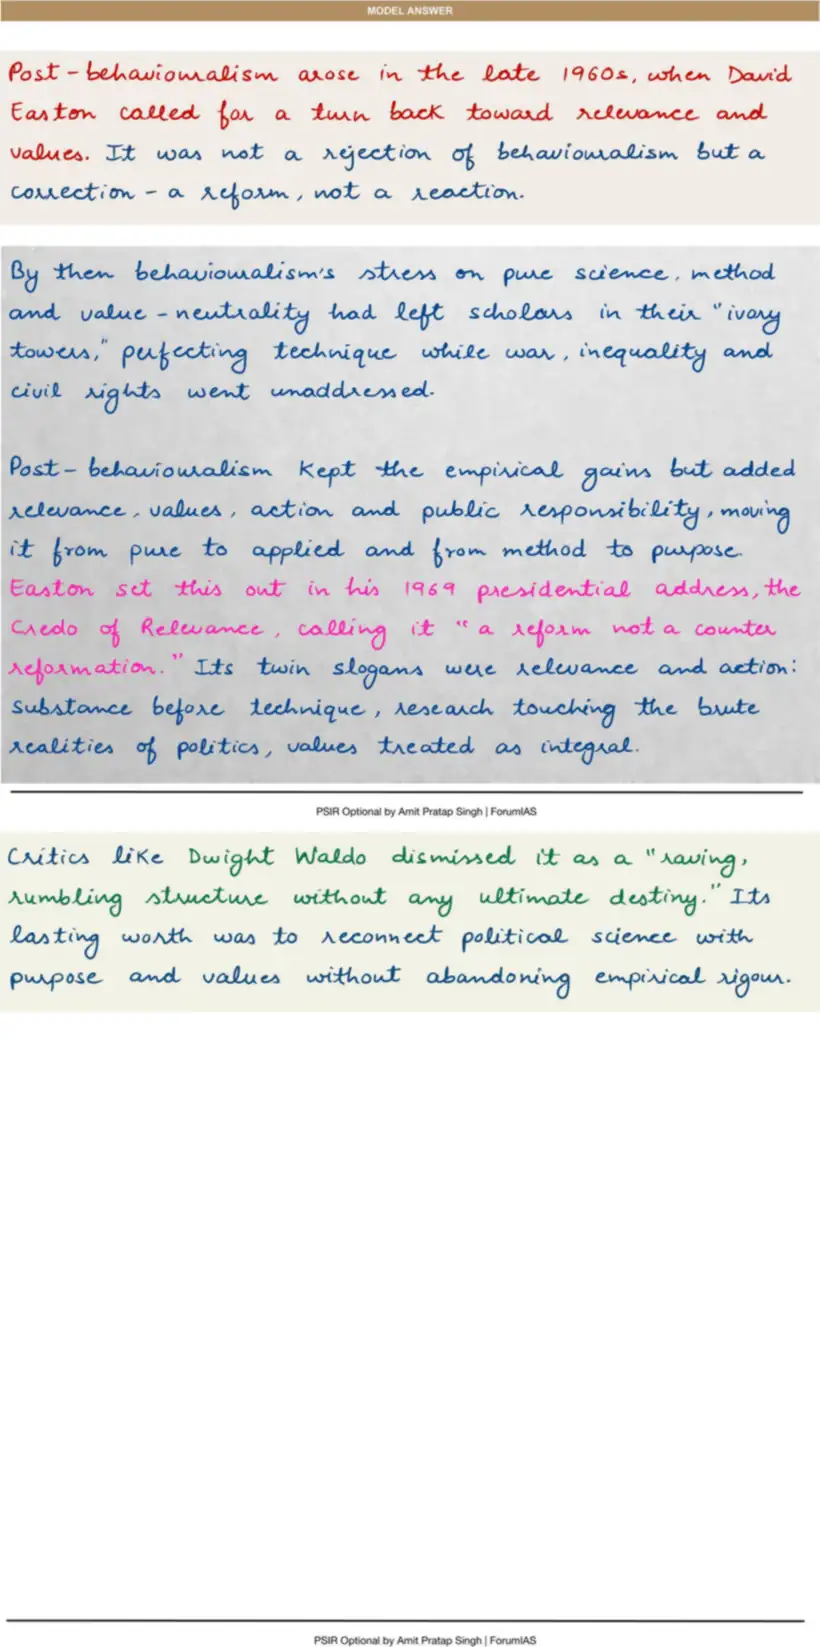 MODEL ANSWER
Post-behaviouralism arose in the late 1960s, when David
Easton called for a turn back toward relevance and
values. It was not a rejection of behaviouralism but a
correction - a reform, not a reaction.
By then behaviouralism's stress on pure science, method
and value-neutrality had left scholars in their "ivory
towers," perfecting technique while war, inequality and
civil rights went unaddressed.
Post-behaviouralism kept the empirical gains but added
relevance, values, action and public responsibility, moving
it from pure to applied and from method to purpose
Easton set this out in his 1969 presidential address, the
Credo of Relevance, calling it "a reform not a counter
reformation." Its twin slogans were relevance and action:
substance before technique, research touching the brute
realities of politics, values treated as integral.
PSIR Optional by Amit Pratap Singh | ForumIAS
Critics like Dwight Waldo dismissed it as a "raving,
rumbling structure without any ultimate destiny." Its
lasting worth was to reconnect political science with
purpose and values without abandoning empirical rigour.
PSIR Optional by Amit Pratap Singh | ForumIAS